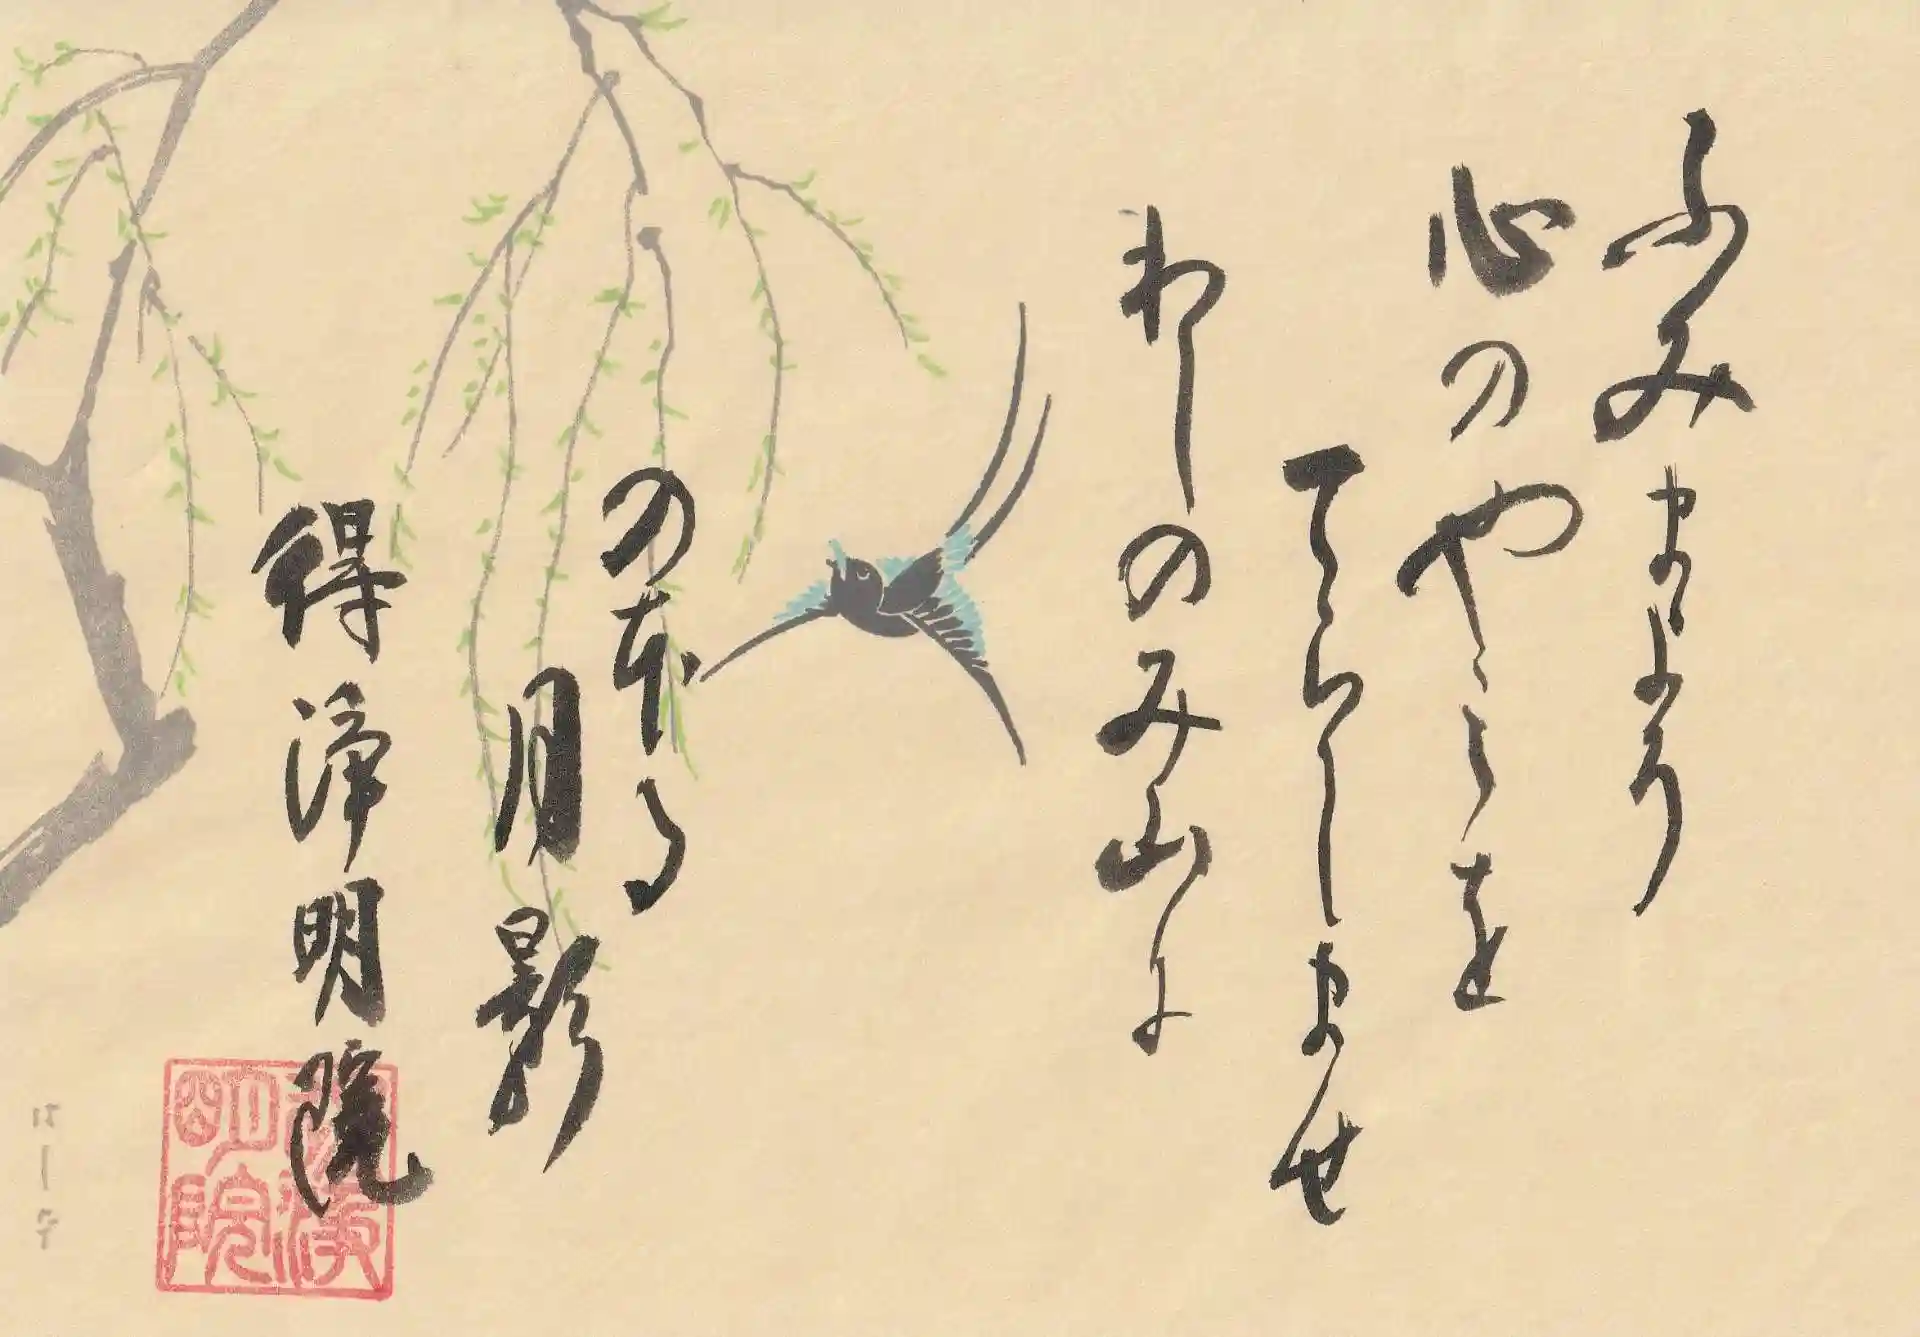 ふみまよう
心のやミを
てらしませ
わしのみ山に
のぼる
月影
得浄明院
得浄明院